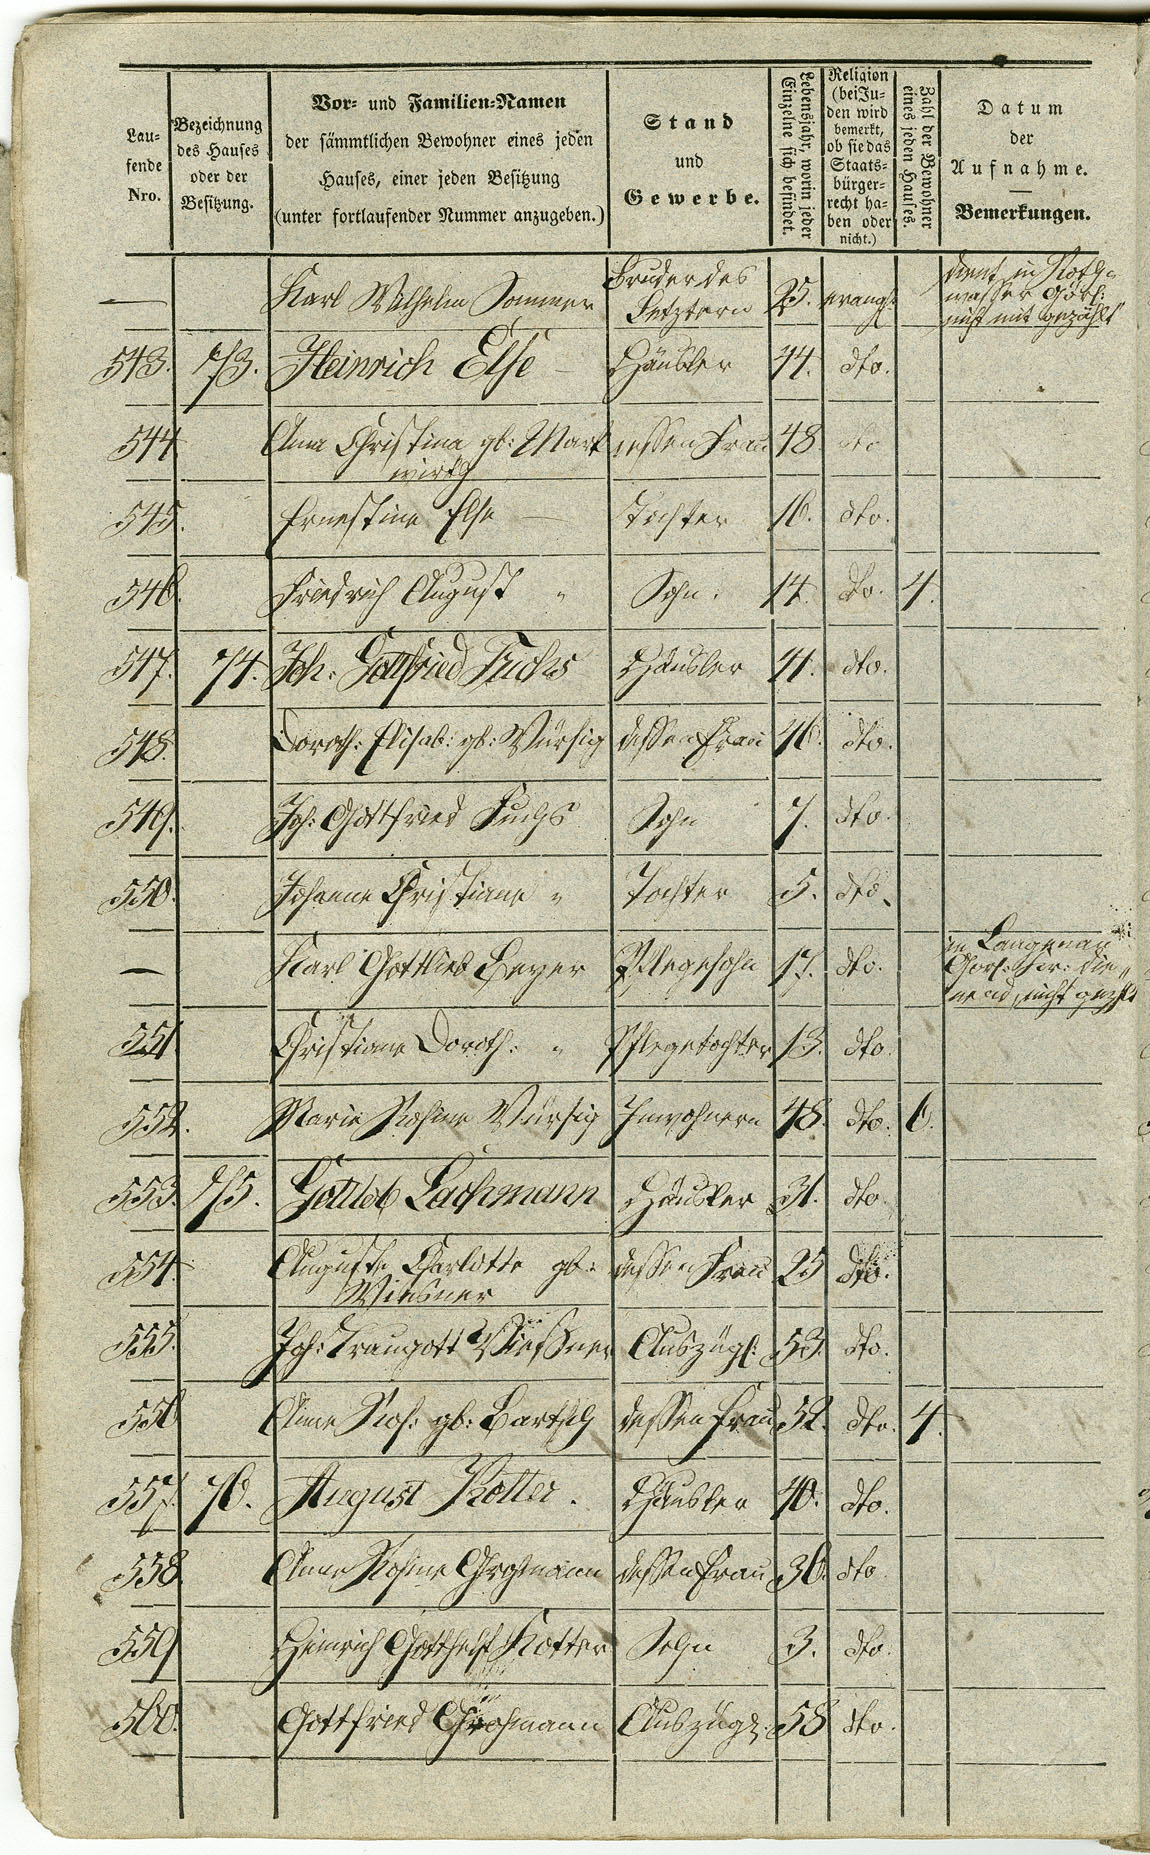 Lau-
fende
Nro.
Bezeichnung
des Hauses
oder der
Besitzung.
Vor- und Familien-Namen
der sämmtlichen Bewohner eines jeden
Hauses, einer jeden Besitzung
(unter fortlaufender Nummer anzugeben.)
Stand
und
Gewerbe.
Lebensjahr, worin jeder
Einzelne sich befindet.
Religion
(bei Ju-
den wird
bemerkt,
ob sie das
Staats-
bürger-
recht ha-
ben oder
nicht.)
Zahl der Bewohner
eines jeden Hauses.
Datum
der
Aufnahme.
Bemerkungen.
— Karl Wilhelm Sommer Bruder des Letztern 25. evangl. dient in Roth-
wasser Görl:
nicht mit gezählt
543. 73. Heinrich Else – Häusler 44. dto.
544 Anna Christina gb: Mark dessen Frau 48 dto
wirth
545. Ernestine Else — Tochter 16. dto.
546. Friedrich August " Sohn. 14. dto. 4.
547. 74. Joh: Gottfried Fuchs Häusler 41. dto.
548. Doroth: Elisab: gb: Würsig dessen Frau 46. dto.
549. Joh: Gottfried Fuchs Sohn 7. dto.
550. Johanne Christiane " Tochter 5. dto.
— Karl Gottlieb Beyer Pflegesohn 17. dto. in Langenau
Görl: Kr: die-
nend, nicht gezählt
551 Christiane Doroth: " Pflegetochter 13. dto.
552. Marie Rosine Würsig Inwohnern 48. dto. 6.
553. 75. Gottlob Lachmann Häusler 31. dto.
554. Auguste Charlotte gb: dessen Frau 25 dto.
Wiesner
555. Joh: Traugott Wießner Auszügl: 53. dto.
556 Anne Ros: gb: Bartsch dessen Frau 52. dto. 4.
557. 76. August Kotter. Häusler 40. dto.
558. Anne Rosine Grohmann dessen Frau 36. dto.
559 Heinrich Gotthelf Kotter Sohn 3. dto.
560. Gottfried Grohmann Auszügl. 58 dto.